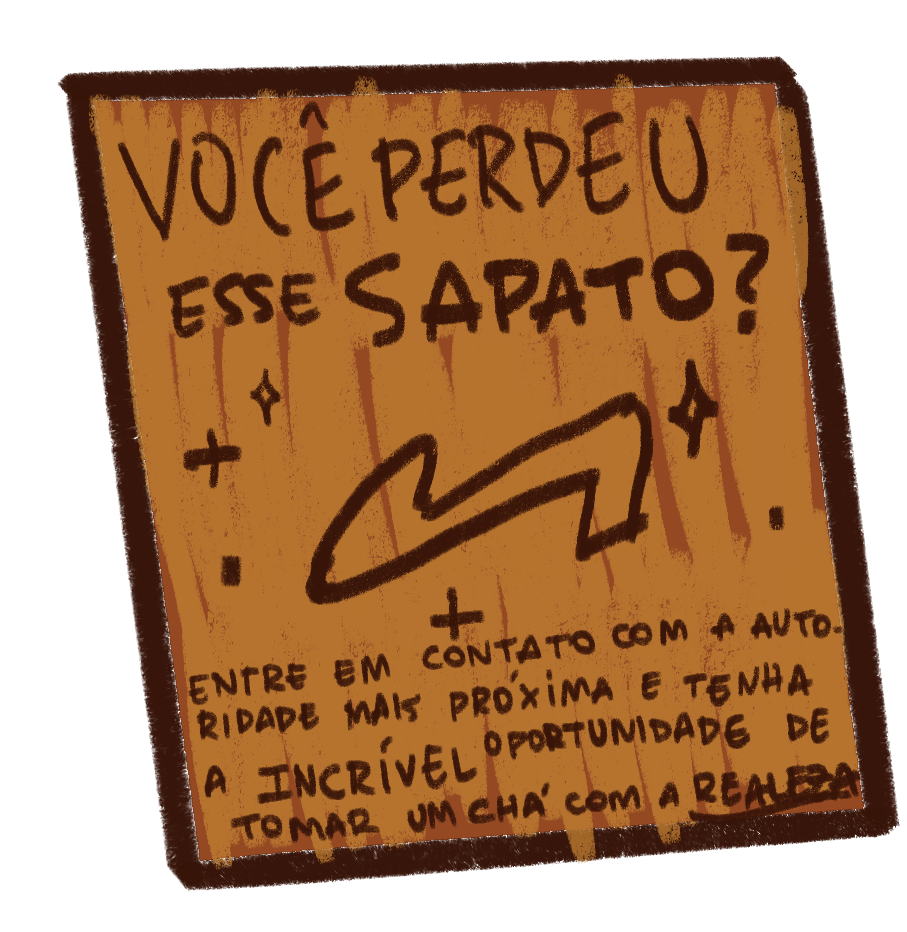 VOCÊ PERDEU
ESSE SAPATO?
ENTRE EM CONTATO COM A AUTO-
RIDADE MAIS PRÓXIMA E TENHA
A INCRÍVEL OPORTUNIDADE DE
TOMAR UM CHÁ COM A REALEZA